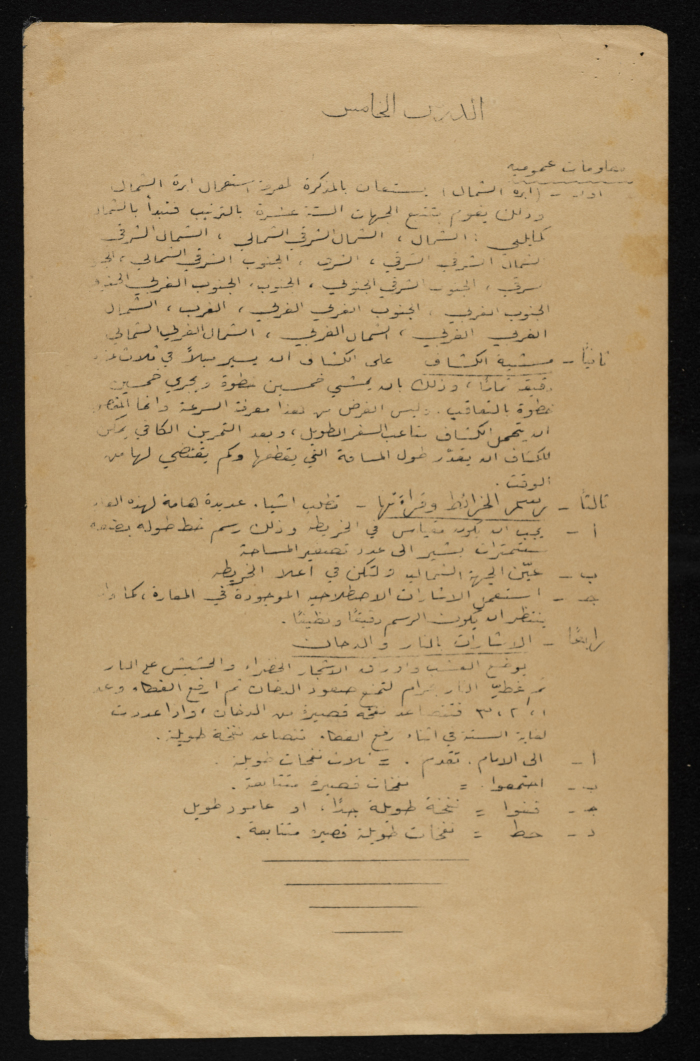 الدرس الخامس
معلومات عمومية
اولا - (ابرة الشمال) يستعان بالمذكرة لمعرفة استعمال ابرة الشمال
وذلك يقوم بتتبع الجهات الستة عشرة بالترتيب فتبدأ بالشمال
كما يلي : الشمال ، الشمال الشرقي الشمالي ، الشمال الشرقي
الشمال الشرقي الشرقي ، الشرق ، الجنوب الشرقي الشمالي ،
الشرقي ، الجنوب الشرقي الجنوبي ، الجنوب ، الجنوب الغربي
الجنوب الغربي ، الجنوب الغربي الغربي ، الغرب ، الشمال
الغربي الغربي ، الشمال الغربي ، الشمال الغربي الشمالي
ثانياً - مشية الكشاف على الكشاف ان يسير ميلاً في ثلاث عشرة
دقيقة تماماً ، وذلك بان يمشي خمسين خطوة ويجري خمسين
خطوة بالتعاقب . وليس الغرض من هذا معرفة السرعة وانما
ان يتحمل الكشاف متاعب السفر الطويل ، وبعد التمرين الكافي يمكن
للكشاف ان يقدّر طول المسافة التي يقطعها وكم يقتضي لها من
الوقت .
ثالثاً - رسم الخرائط وقراءتها - تطلب اشياء عديدة هامة لهذه
أ - يجب ان يكون مقياس في الخريطة وذلك رسم خط طوله بضعة
سنتمترات يشير الى عدد تصغير المساحة
ب - عيّن الجهة الشمالية ولتكن في اعلا الخريطة
ج - استعمل الاشارات الاصطلاحية الموجودة في المعارف ، كما
ينتظر ان يكون الرسم دقيقاً ونظيفاً .
رابعاً - الاشارات بالنار والدخان
يوضع العشب واوراق الاشجار الخضراء والحشيش على النار
ثم غطيّ النار بحرام لتمنع صعود الدخان ثم ارفع الغطاء وعد
١ ، ٢ ، ٣ فتتصاعد نفخة قصيرة من الدخان ، واذا عددت
لغاية الستة في اثناء رفع الغطاء تتصاعد نفخة طويلة .
أ - الى الامام . تقدم . = ثلاث نفخات طويلة .
ب - اجتمعوا . = نفخات قصيرة متتابعة .
ج - قفوا = نفخة طويلة جداً ، او عامود طويل
د - خطر = نفخات طويلة قصيرة متتابعة .